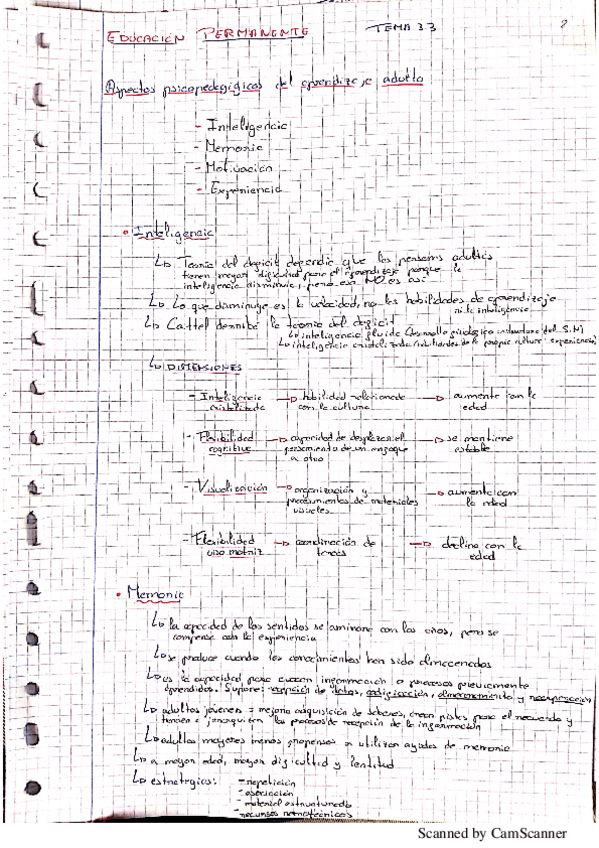 EDUCACIÓN PERMANENTE TEMA 33
Aspectos psicopedagógicos del aprendizaje adulto
- Inteligencia
- Memoria
- Motivación
- Experiencia
• Inteligencia
↳ Teoría del déficit defendía que las personas adultas
tienen mayor dificultad para el aprendizaje porque la
inteligencia disminuye, pero eso NO es así
↳ Lo que disminuye es la velocidad, no las habilidades de aprendizaje
ni la inteligencia
↳ Cattel derribó la teoría del déficit
↳ inteligencia fluida (desarrollo fisiológico, estructura del S.N)
↳ inteligencia cristalizada (habilidades de la propia cultura experiencia)
↳ DIMENSIONES
- Inteligencia → habilidad relacionada → aumenta con la
cristalizada con la cultura edad
- Flexibilidad → capacidad de desplazar el → se mantiene
cognitiva pensamiento de un enfoque estable
a otro
- Visualización → organización y → aumenta con
procesamientos de materiales la edad
visuales
- Flexibilidad → coordinación de → declina con la
viso motriz tareas edad
• Memoria
↳ la capacidad de los sentidos se aminora con los años, pero se
compensa con la experiencia
↳ se produce cuando los conocimientos han sido almacenados
↳ es la capacidad para evocar información o procesos previamente
aprendidos. Supone: recepción de datos, codificación, almacenamiento y recuperación
↳ adultos jóvenes = mejoría adquisición de saberes, crean pistas para el recuerdo y
tienden a jerarquizar los procesos de recepción de la información
↳ adultos mayores menos propensos a utilizar ayudas de memoria
↳ a mayor edad, mayor dificultad y lentitud
↳ estrategias: - repetición
- asociación
- material estructurado
- recursos nemotécnicos
Scanned by CamScanner